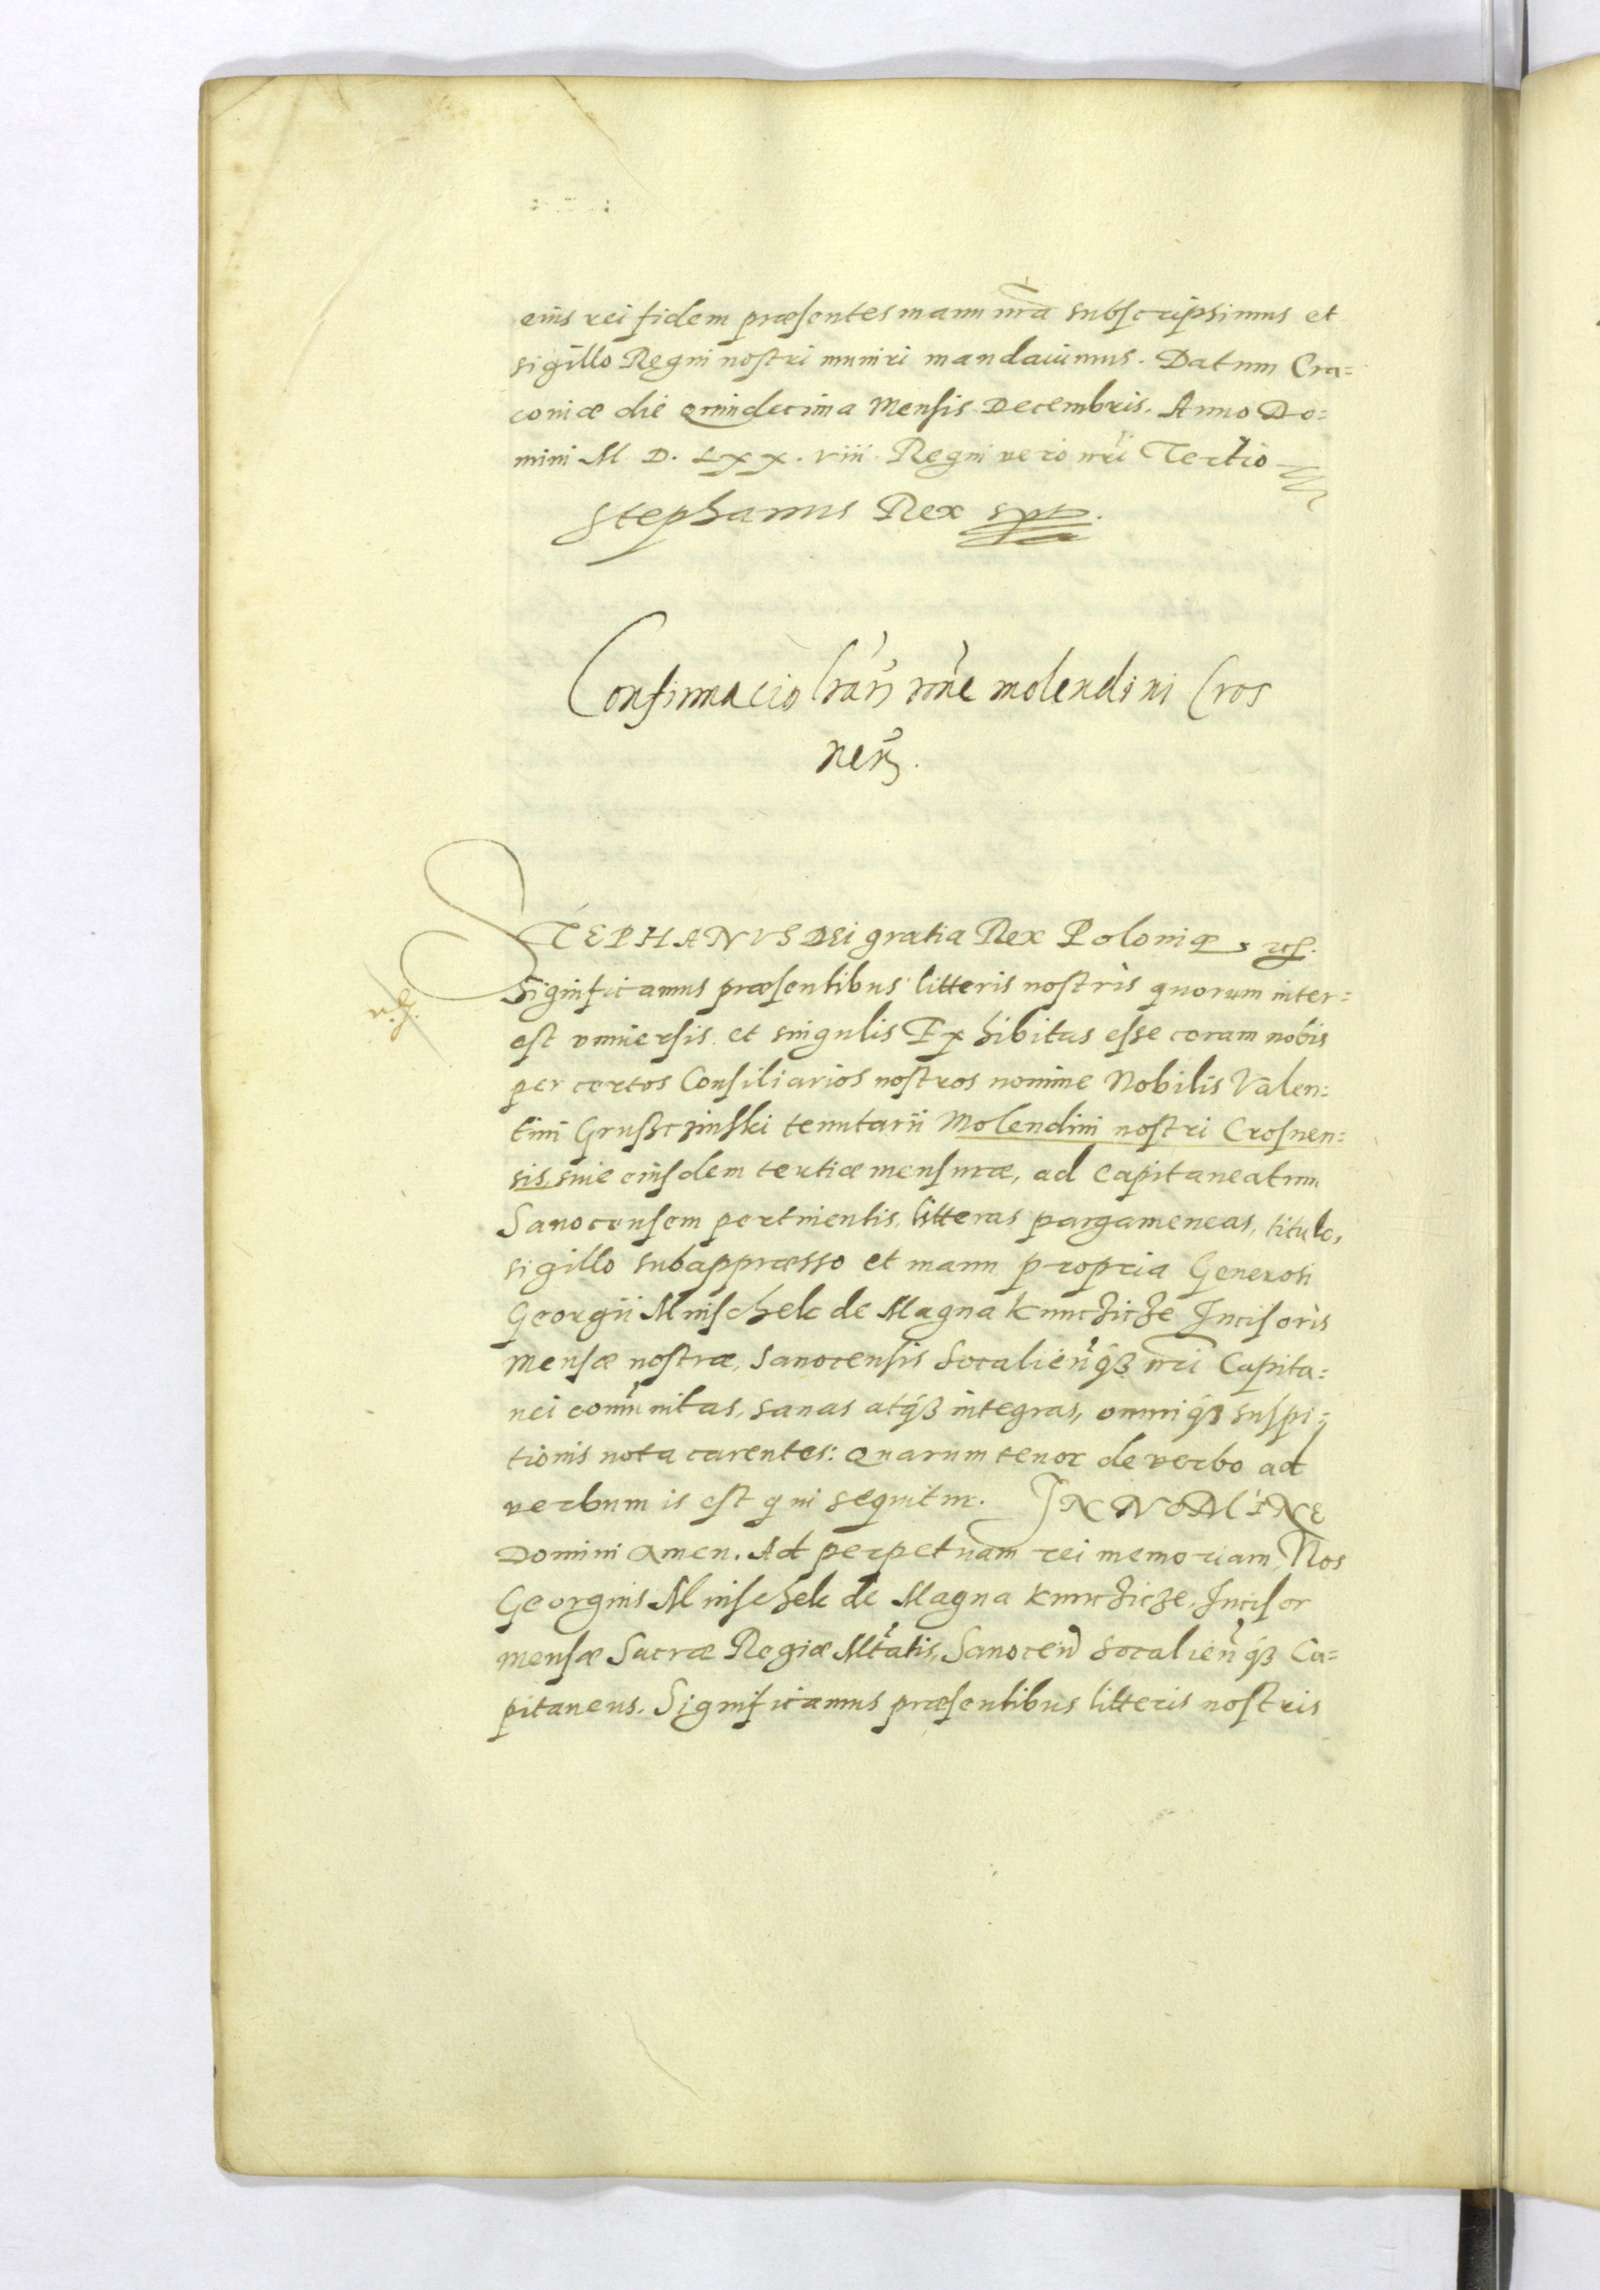 eius rei fidem præsentes manu nr̃a subscripsimus et
sigillo Regni nostri muniri mandauimus. Datum Cra=
couiæ die quindecima Mensis Decembris. Anno Do=
mini M. D. LXX. viii. Regni vero nr̃i Tertio
Stephanus Rex spt.
Confirmacio molendini Cros
neñ.
STEPHANVS DEi gratia Rex Poloniæ,
Significamus præsentibus litteris nostris quorum inter=
est vniuersis et singulis Exhibitas esse coram nobis
per certos Consiliarios nostros nomine Nobilis Valen=
tini Grusczinski tenutarii Molendini nostri Crosnen=
sis, siue eiusdem tertiæ mensuræ, ad Capitaneatum
Sanocensem pertinentis, litteras pargameneas, titulo,
sigillo subappræsso et manu propria Generosi
Georgii Mnischek de Magna Kunczicze Incisoris
Mensæ nostræ, Sanocensis Socalień qß nr̃i Capita=
nei com̃unitas, sanas atqß integras, omniqß suspi=
tionis nota carentes: Quarum tenor de verbo ad
verbum is est qui sequitur. IN NOMINE
Domini Amen. Ad perpetuam rei memoriam, Nos
Georgius Mnischek de Magna Kunczicze, Incisor
mensæ Sacræ Regiæ Mtatis, Sanoceñ Socalień qß Ca=
pitaneus. Significamus præsentibus litteris nostris